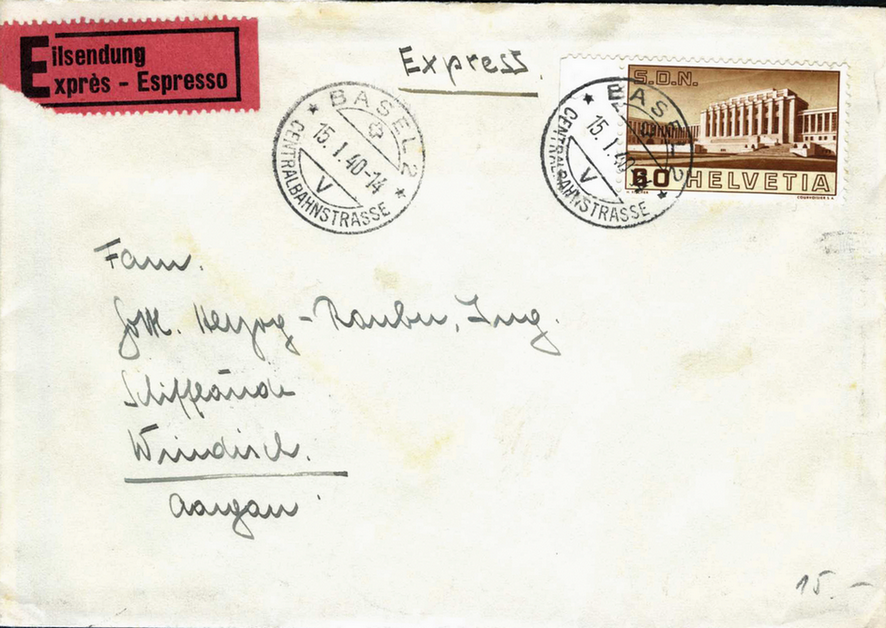 Eilsendung
Exprès - Espresso
Express.
BASEL 2
15.I.40-14
V
CENTRALBAHNSTRASSE
BASEL 2
15.I.40
V
CENTRALBAHNSTRASSE
S.D.N.
60 HELVETIA
COURVOISIER S.A.
Fam.
Gottl. Herzog-Rauber, Ing.
Schifflände
Windisch.
Aargau
15.-